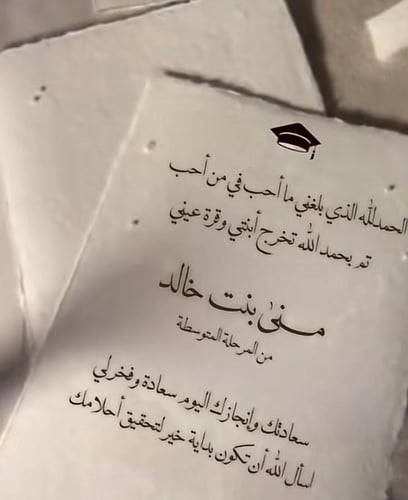 الحمدلله الذي بلغني ما أحب في من أحب
تم بحمد الله تخرج أبنتي وقرة عيني
منى بنت خالد
من المرحلة المتوسطة
سعادتك وإنجازك اليوم سعادة وفخرلي
اسأل الله أن تكون بداية خير لتحقيق أحلامك